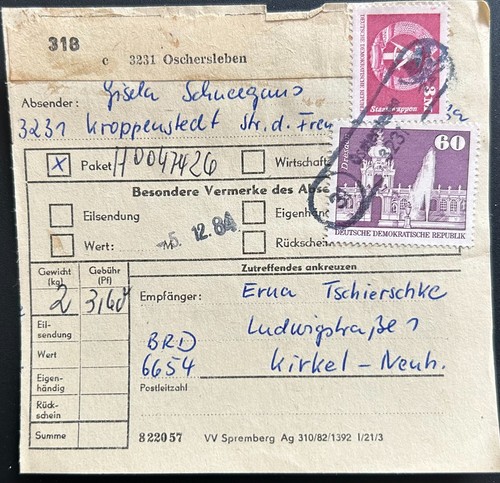 318
c 3231 Oschersleben
Absender: Gisela Schneegans
3231 Kroppenstedt Str. d. Freu
DEUTSCHE DEMOKRATISCHE REPUBLIK
3M
Staatswappen
X Paket H0047426 Wirtschafts
Besondere Vermerke des Abse
Eilsendung Eigenhänd
Wert: Rückschein
-5. 12. 84
Dresden
60
DEUTSCHE DEMOKRATISCHE REPUBLIK
Zutreffendes ankreuzen
Gewicht (kg) Gebühr (Pf)
2 3,60
Eil-sendung
Wert
Eigen-händig
Rück-schein
Summe
Empfänger: Erna Tschierschke
Ludwigstraße 1
BRD
6654 Kirkel-Neuh.
Postleitzahl
822057 VV Spremberg Ag 310/82/1392 I/21/3